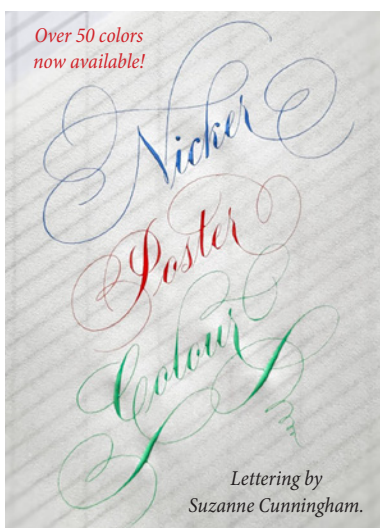 Over 50 colors
now available!
Nicker
Poster
Colour
Lettering by
Suzanne Cunningham.